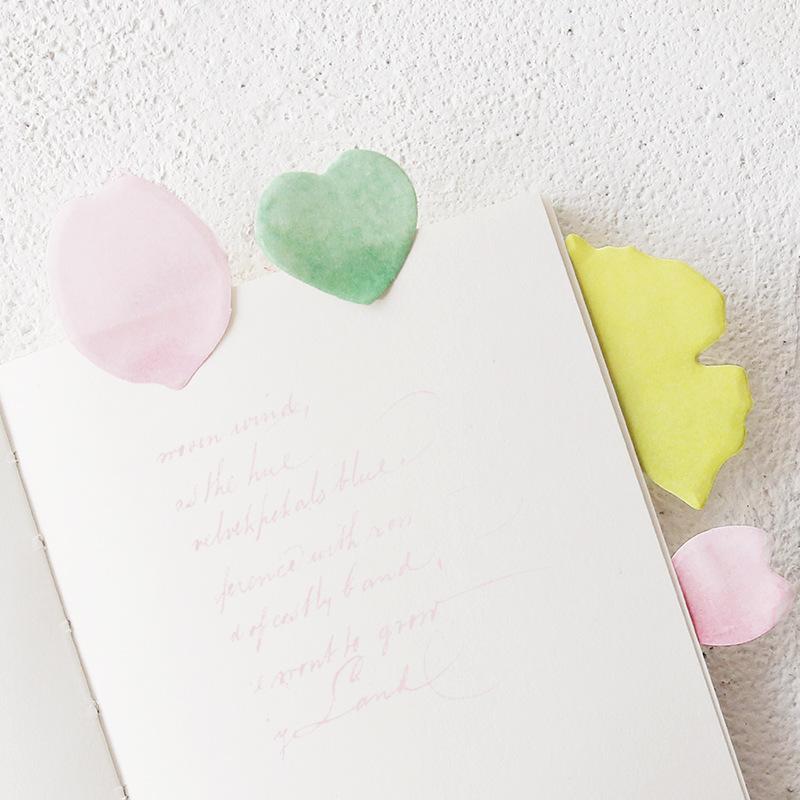 woven wind,
as the hue
velvet petals blue,
ference with ros
d of costly band,
s wont to grow
Land